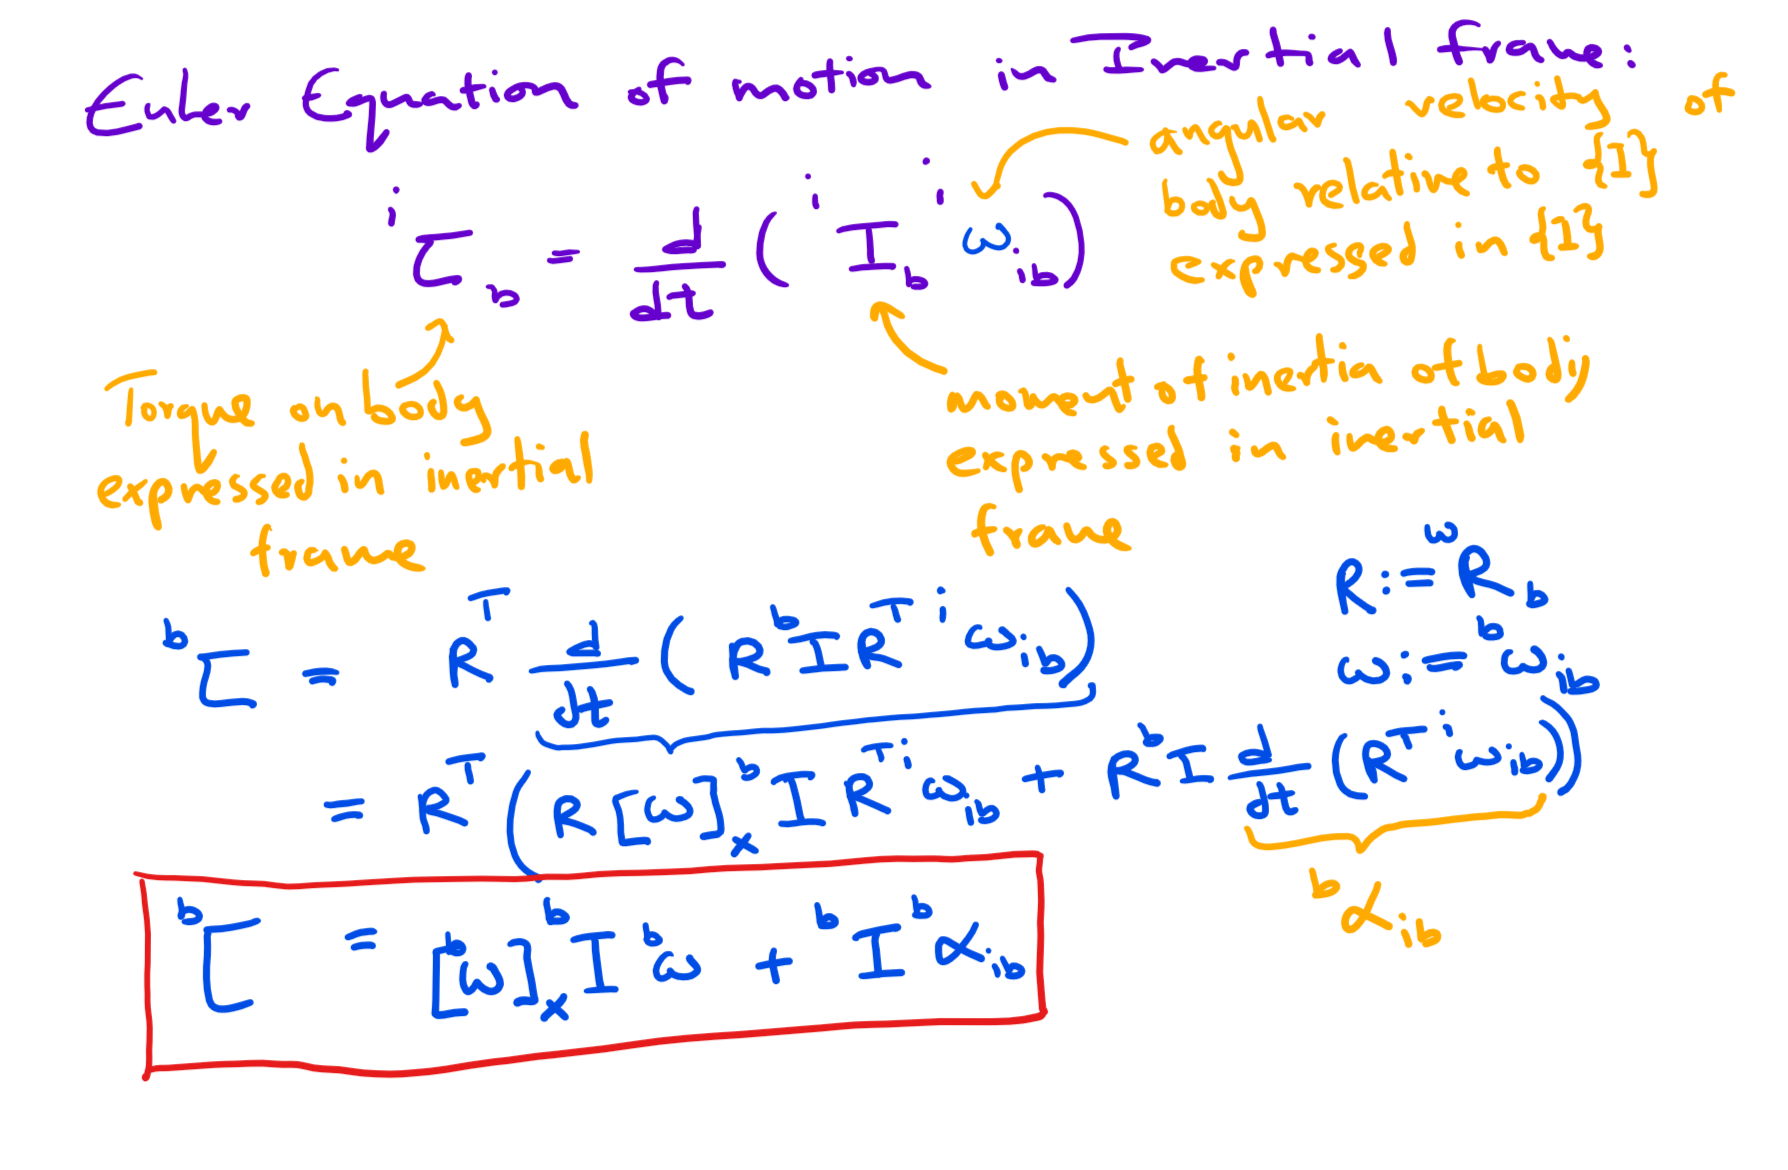 Euler Equation of motion in Inertial frame:
ⁱτ_b = d/dt ( ⁱI_b ⁱω_ib )
angular velocity of
body relative to {I}
expressed in {I}
Torque on body
expressed in inertial
frame
moment of inertia of body
expressed in inertial
frame
R := ʷR_b
ω := ᵇω_ib
ᵇτ = Rᵀ d/dt ( R ᵇI Rᵀ ⁱω_ib )
= Rᵀ ( R [ω]ₓ ᵇI Rᵀ ⁱω_ib + R ᵇI d/dt (Rᵀ ⁱω_ib) )
ᵇα_ib
ᵇτ = [ᵇω]ₓ ᵇI ᵇω + ᵇI ᵇα_ib